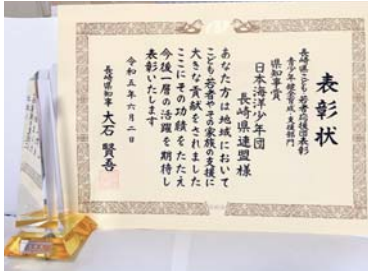 表彰状
長崎県こども・若者応援団表彰
青少年健全育成・支援部門
県知事賞
日本海洋少年団
長崎県連盟様
あなた方は地域において
こども若者やその家族の支援に
大きな貢献をされました
ここにその功績をたたえ
今後一層の活躍を期待し
表彰いたします
令和五年六月二日
長崎県知事 大石賢吾